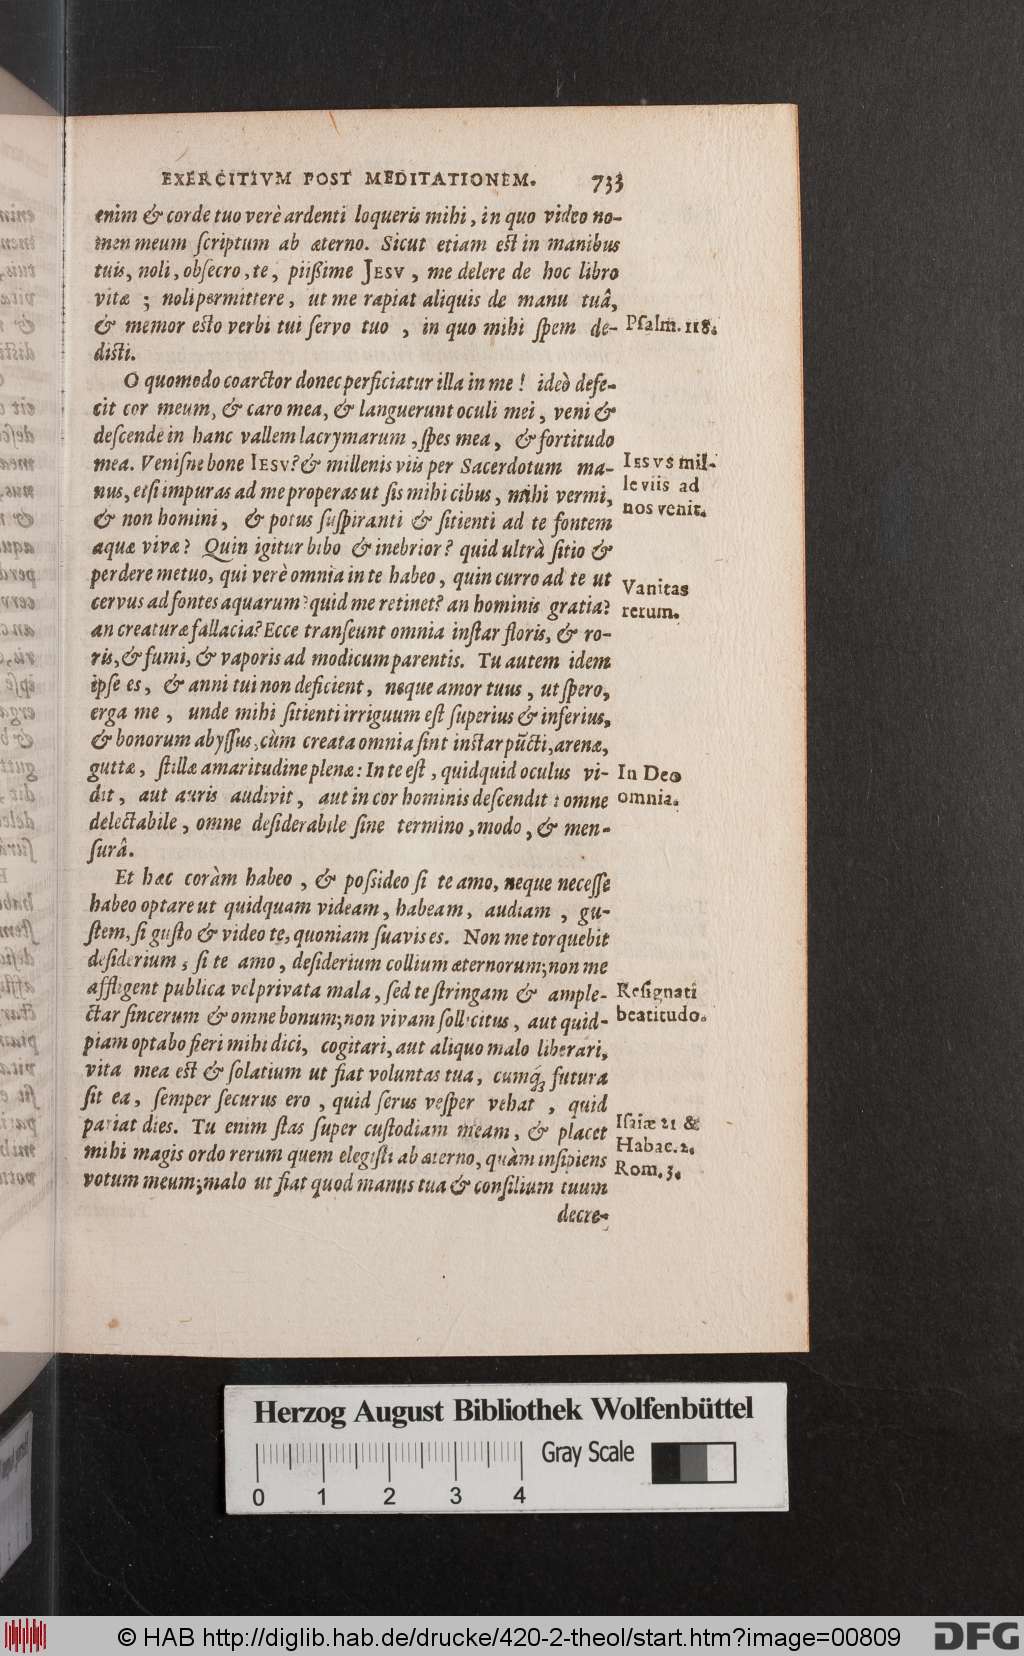 EXERCITIVM POST MEDITATIONEM. 733
enim & corde tuo verè ardenti loqueris mihi, in quo video no-
men meum scriptum ab æterno. Sicut etiam est in manibus
tuis, noli, obsecro, te, piissime JESV, me delere de hoc libro
vitæ; noli permittere, ut me rapiat aliquis de manu tuâ,
& memor esto verbi tui servo tuo, in quo mihi spem de-
Psalm. 118.
disti.
O quomodo coarctor donec perficiatur illa in me! ideò defe-
cit cor meum, & caro mea, & languerunt oculi mei, veni &
descende in hanc vallem lacrymarum, spes mea, & fortitudo
mea. Venisne bone IESV? & millenis viis per Sacerdotum ma-
IESVS mil-
nus, etsi impuras ad me properas ut sis mihi cibus, mihi vermi,
le viis ad
& non homini, & potus suspiranti & sitienti ad te fontem
nos venit.
aquæ vivæ? Quin igitur bibo & inebrior? quid ultrà sitio &
perdere metuo, qui verè omnia in te habeo, quin curro ad te ut
Vanitas
cervus ad fontes aquarum? quid me retinet? an hominis gratia?
rerum.
an creaturæ fallacia? Ecce transeunt omnia instar floris, & ro-
ris, & fumi, & vaporis ad modicum parentis. Tu autem idem
ipse es, & anni tui non deficient, neque amor tuus, ut spero,
erga me, unde mihi sitienti irriguum est superius & inferius,
& bonorum abyssus, cùm creata omnia sint instar pũcti, arenæ,
guttæ, stillæ amaritudine plenæ: In te est, quidquid oculus vi-
In Deo
dit, aut auris audivit, aut in cor hominis descendit: omne
omnia.
delectabile, omne desiderabile sine termino, modo, & men-
surâ.
Et hæc coràm habeo, & possideo si te amo, neque necesse
habeo optare ut quidquam videam, habeam, audiam, gu-
stem, si gusto & video te, quoniam suavis es. Non me torquebit
desiderium, si te amo, desiderium collium æternorum; non me
affligent publica vel privata mala, sed te stringam & ample-
Resignati
ctar sincerum & omne bonum; non vivam sollicitus, aut quid-
beatitudo.
piam optabo fieri mihi dici, cogitari, aut aliquo malo liberari,
vita mea est & solatium ut fiat voluntas tua, cumq́ꝫ futura
sit ea, semper securus ero, quid serus vesper vehat, quid
pariat dies. Tu enim stas super custodiam meam, & placet
Isaiæ 21 &
mihi magis ordo rerum quem elegisti ab æterno, quàm insipiens
Habac. 2.
votum meum; malo ut fiat quod manus tua & consilium tuum
Rom. 3.
decre-
Herzog August Bibliothek Wolfenbüttel
Gray Scale
0 1 2 3 4
© HAB http://diglib.hab.de/drucke/420-2-theol/start.htm?image=00809 DFG